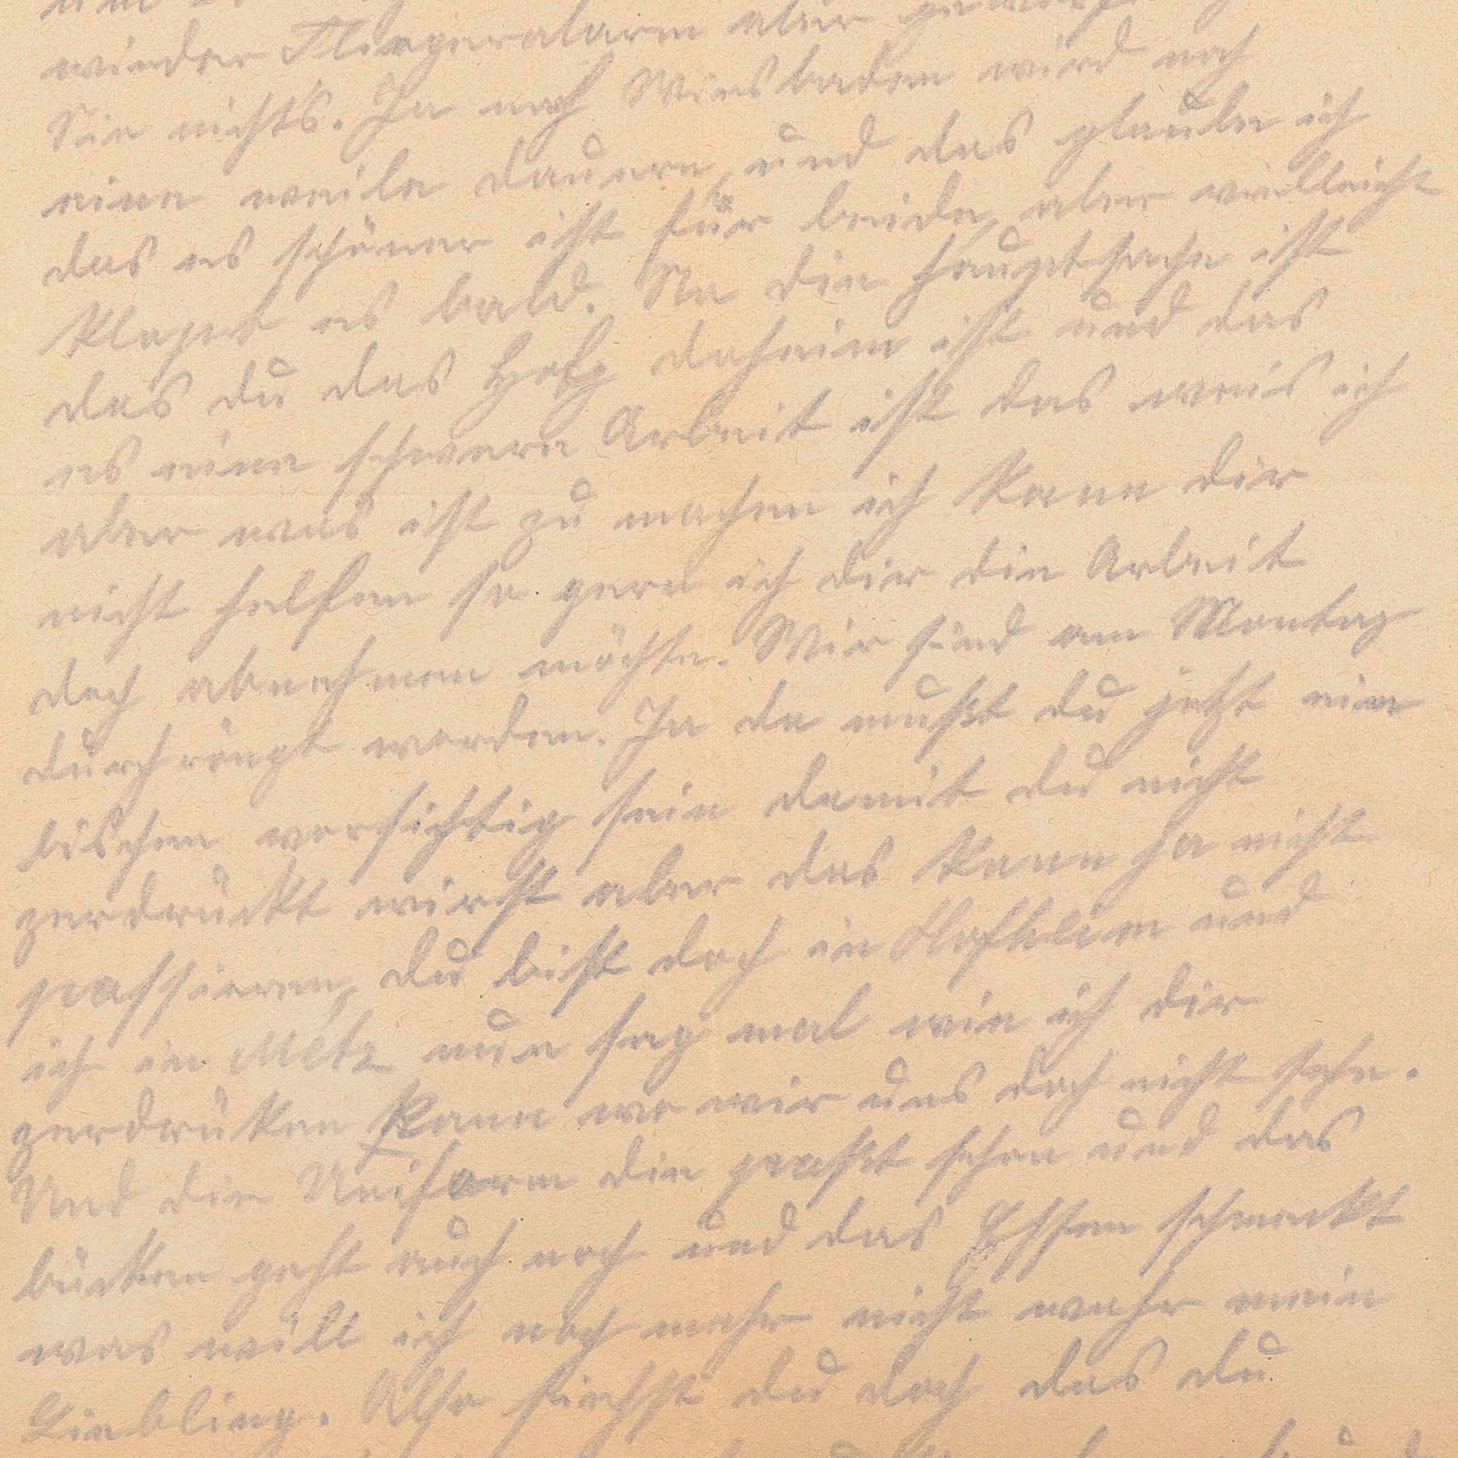 wieder Fliegeralarm aber geworfen
Sie nichts. Ja nach Wiesbaden wird noch
eine weile dauern, und das glaube ich
das es schöner ist für beide, aber vielleicht
klapt es bald. Na die Hauptsache ist
das du das Holz daheim ist und das
es eine schwere Arbeit ist das weis ich
aber was ist zu machen ich kann dir
nicht helfen so gern ich dir die Arbeit
doch abnehmen möchte. Wir sind am Montag
durchröngt worden. Ja da mußt du jetzt ein
bischen vorsichtig sein damit du nicht
zerdrückt wirst aber das kann ja nicht
passieren, du bist doch in Hofheim und
ich in Metz nun sag mal wie ich dir
zerdrüken kann wo wir uns doch nicht sehn.
Und die Uniform die paßt schon und das
bücken geht auch noch und das Essen schmeckt
was will ich noch mehr nicht wahr mein
Liebling. Also siehst du doch das du